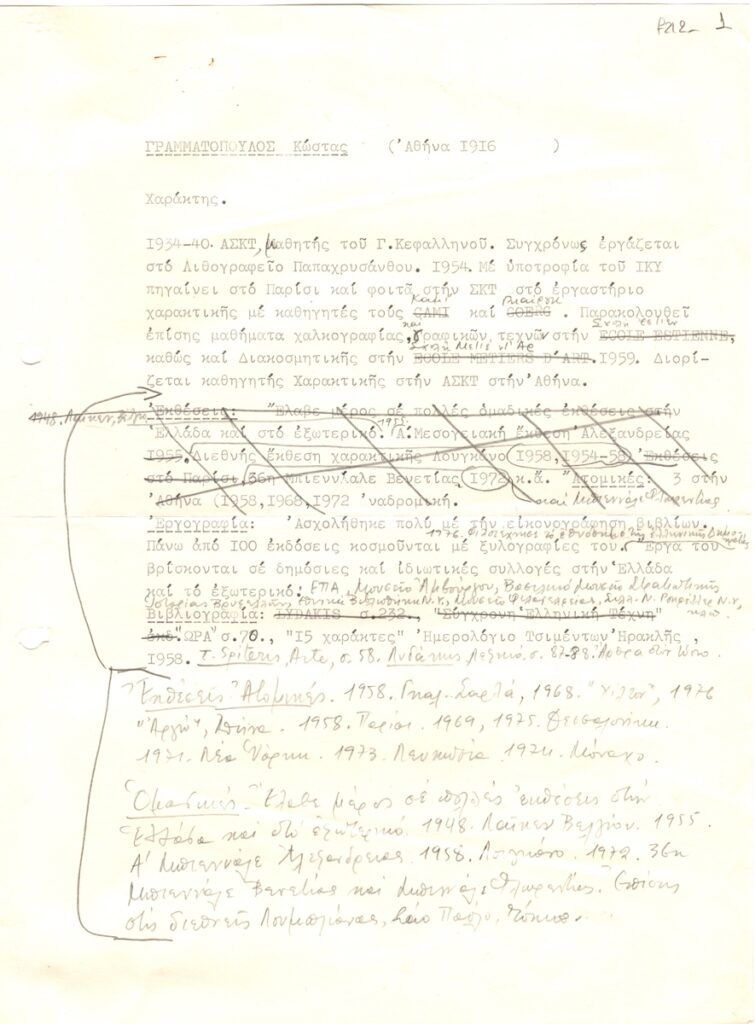 1
ΓΡΑΜΜΑΤΟΠΟΥΛΟΣ Κώστας ('Αθήνα 1916 )
Χαράκτης.
1934-40. ΑΣΚΤ, μαθητής τοῦ Γ.Κεφαλληνοῦ. Συγχρόνως ἐργάζεται
στό Λιθογραφεῖο Παπαχρυσάνθου. 1954. Μέ ὑποτροφία τοῦ ΙΚΥ
πηγαίνει στό Παρίσι καί φοιτᾶ στήν ΣΚΤ στό ἐργαστήριο
Καμί
χαρακτικῆς μέ καθηγητές τούς CAMI καί GOERG . Παρακολουθεῖ
καί Σχολή
ἐπίσης μαθήματα χαλκογραφίας, γραφικῶν τεχνῶν στήν ECOLE ESTIENNE,
Σχολή Metie d'Ar
καθώς καί Διακοσμητικῆς στήν ECOLE METIERS D'ART. 1959. Διορί-
ζεται καθηγητής Χαρακτικῆς στήν ΑΣΚΤ στήν 'Αθήνα.
1948. Λαϊκεν,
'Εκθέσεις: "Ελαβε μέρος σέ πολλές ὁμαδικές ἐκθέσεις στήν
1955
'Ελλάδα καί στό ἐξωτερικό. Α.Μεσογειακή ἔκθεση 'Αλεξανδρείας
1955, Διεθνής ἔκθεση χαρακτικῆς Λουγκάνο 1958, 1954-58, 'Εκθέσεις
στό Παρίσι, 36η Μπιεννάλε Βενετίας 1972 κ.ἄ. "Ατομικές: 3 στήν
'Αθήνα (1958,1968,1972 ἀναδρομική.
καί Μπιεννάλε Φλωρεντίας
'Εργογραφία: 'Ασχολήθηκε πολύ μέ τήν εἰκονογράφηση βιβλίων.
1976. τῆς Ἑλληνικῆς Δημοκρατίας
Πάνω ἀπό 100 ἐκδόσεις κοσμοῦνται μέ ξυλογραφίες του. "Εργα του
βρίσκονται σέ δημόσιες καί ἰδιωτικές συλλογές στήν 'Ελλάδα
καί τό ἐξωτερικό: ΕΠΑ, Μουσεῖο Ἁμβούργου, Βασιλικό Μουσεῖο Στρατιωτικῆς
Ἱστορίας Βρυξελλῶν, Ἐθνική Βιβλιοθήκη Ν.Υ., Μουσεῖο Φιλαδελφείας, Συλλ. Ν. Ροκφέλλερ Ν.Υ.
Βιβλιογραφία: LYDAKIS σ.232, "Σύγχρονη 'Ελληνική Τέχνη"
"ΩΡΑ" σ.70., "15 χαράκτες" 'Ημερολόγιο Τσιμέντων 'Ηρακλῆς ,
1958. T. Spiteris, Arte, σ. 58. Λυδάκης, Λεξικό σ. 87-88.
Ἐκθέσεις Ἀτομικές. 1958. Γκαλ. Ζαρλά, 1968. "Χίλτον", 1976
"Ἀργώ", Ἀθήνα. 1958. Παρίσι. 1969, 1975. Θεσσαλονίκη.
1971. Νέα Ὑόρκη. 1973. Λευκωσία. 1974. Μόναχο.
Ὁμαδικές. Ἔλαβε μέρος σέ πολλές ἐκθέσεις στήν
Ἑλλάδα καί στό ἐξωτερικό. 1948. Λαϊκεν Βελγίου. 1955.
Α' Μπιεννάλε Ἀλεξανδρείας. 1958. Λουγκάνο. 1972. 36η
Μπιεννάλε Βενετίας καί Μπιεννάλε Φλωρεντίας. Ἐπίσης
στίς διεθνεῖς Λουμπλιάνας, Σάο Πάολο, Τόκιο.